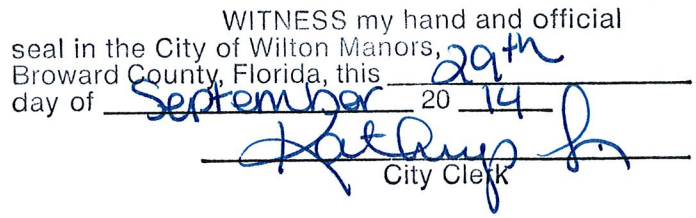 WITNESS my hand and official
seal in the City of Wilton Manors,
Broward County, Florida, this 29th
day of September 20 14
City Clerk